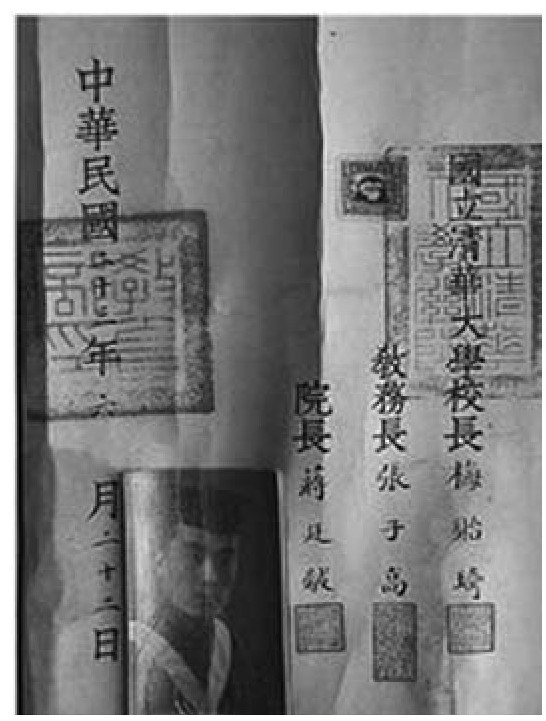 國立清華大學校長梅貽琦
敎務長張子高
院長蔣廷黻
中華民國二十二年六月二十二日